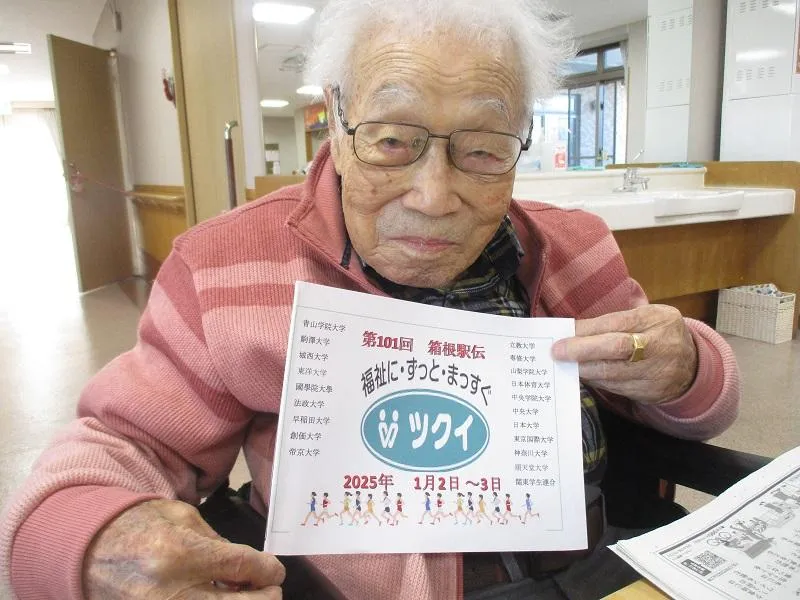 第101回 箱根駅伝
福祉に・ずっと・まっすぐ
ツクイ
2025年 1月2日 ～3日
青山学院大学
駒澤大学
城西大学
東洋大学
國學院大學
法政大学
早稲田大学
創価大学
帝京大学
立教大学
専修大学
山梨学院大学
日本体育大学
中央学院大学
中央大学
日本大学
東京国際大学
神奈川大学
順天堂大学
関東学生連合